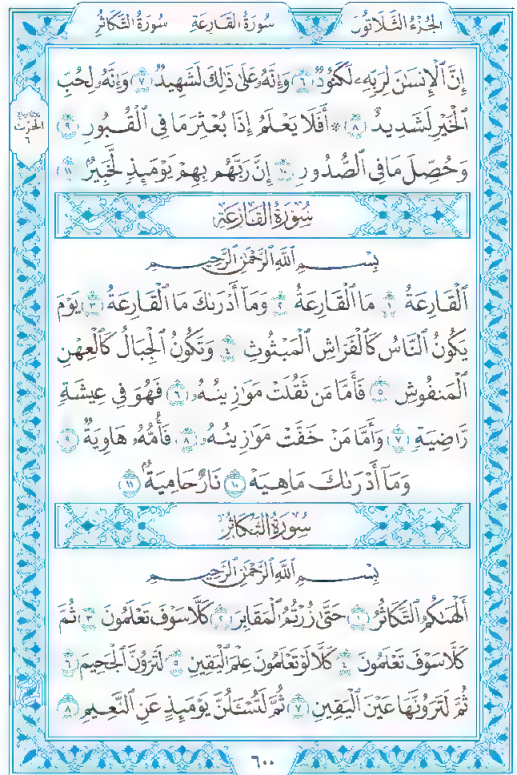 الجُزْءُ الثَّلَاثُونَ سُورَةُ القَارِعَةِ سُورَةُ التَّكَاثُرِ
إِنَّ ٱلْإِنسَٰنَ لِرَبِّهِۦ لَكَنُودٌ ٦ وَإِنَّهُۥ عَلَىٰ ذَٰلِكَ لَشَهِيدٌ ٧ وَإِنَّهُۥ لِحُبِّ
ٱلْخَيْرِ لَشَدِيدٌ ٨ ۞ أَفَلَا يَعْلَمُ إِذَا بُعْثِرَ مَا فِى ٱلْقُبُورِ ٩
وَحُصِّلَ مَا فِى ٱلصُّدُورِ ١٠ إِنَّ رَبَّهُم بِهِمْ يَوْمَئِذٍ لَّخَبِيرٌۢ ١١
سُورَةُ القَارِعَةِ
بِسْمِ ٱللَّهِ ٱلرَّحْمَٰنِ ٱلرَّحِيمِ
ٱلْقَارِعَةُ ١ مَا ٱلْقَارِعَةُ ٢ وَمَآ أَدْرَىٰكَ مَا ٱلْقَارِعَةُ ٣ يَوْمَ
يَكُونُ ٱلنَّاسُ كَٱلْفَرَاشِ ٱلْمَبْثُوثِ ٤ وَتَكُونُ ٱلْجِبَالُ كَٱلْعِهْنِ
ٱلْمَنفُوشِ ٥ فَأَمَّا مَن ثَقُلَتْ مَوَٰزِينُهُۥ ٦ فَهُوَ فِى عِيشَةٍ
رَّاضِيَةٍ ٧ وَأَمَّا مَنْ خَفَّتْ مَوَٰزِينُهُۥ ٨ فَأُمُّهُۥ هَاوِيَةٌ ٩
وَمَآ أَدْرَىٰكَ مَا هِيَهْ ١٠ نَارٌ حَامِيَةٌۢ ١١
سُورَةُ التَّكَاثُرِ
بِسْمِ ٱللَّهِ ٱلرَّحْمَٰنِ ٱلرَّحِيمِ
أَلْهَىٰكُمُ ٱلتَّكَاثُرُ ١ حَتَّىٰ زُرْتُمُ ٱلْمَقَابِرَ ٢ كَلَّا سَوْفَ تَعْلَمُونَ ٣ ثُمَّ
كَلَّا سَوْفَ تَعْلَمُونَ ٤ كَلَّا لَوْ تَعْلَمُونَ عِلْمَ ٱلْيَقِينِ ٥ لَتَرَوُنَّ ٱلْجَحِيمَ ٦
ثُمَّ لَتَرَوُنَّهَا عَيْنَ ٱلْيَقِينِ ٧ ثُمَّ لَتُسْـَٔلُنَّ يَوْمَئِذٍ عَنِ ٱلنَّعِيمِ ٨
٦٠٠